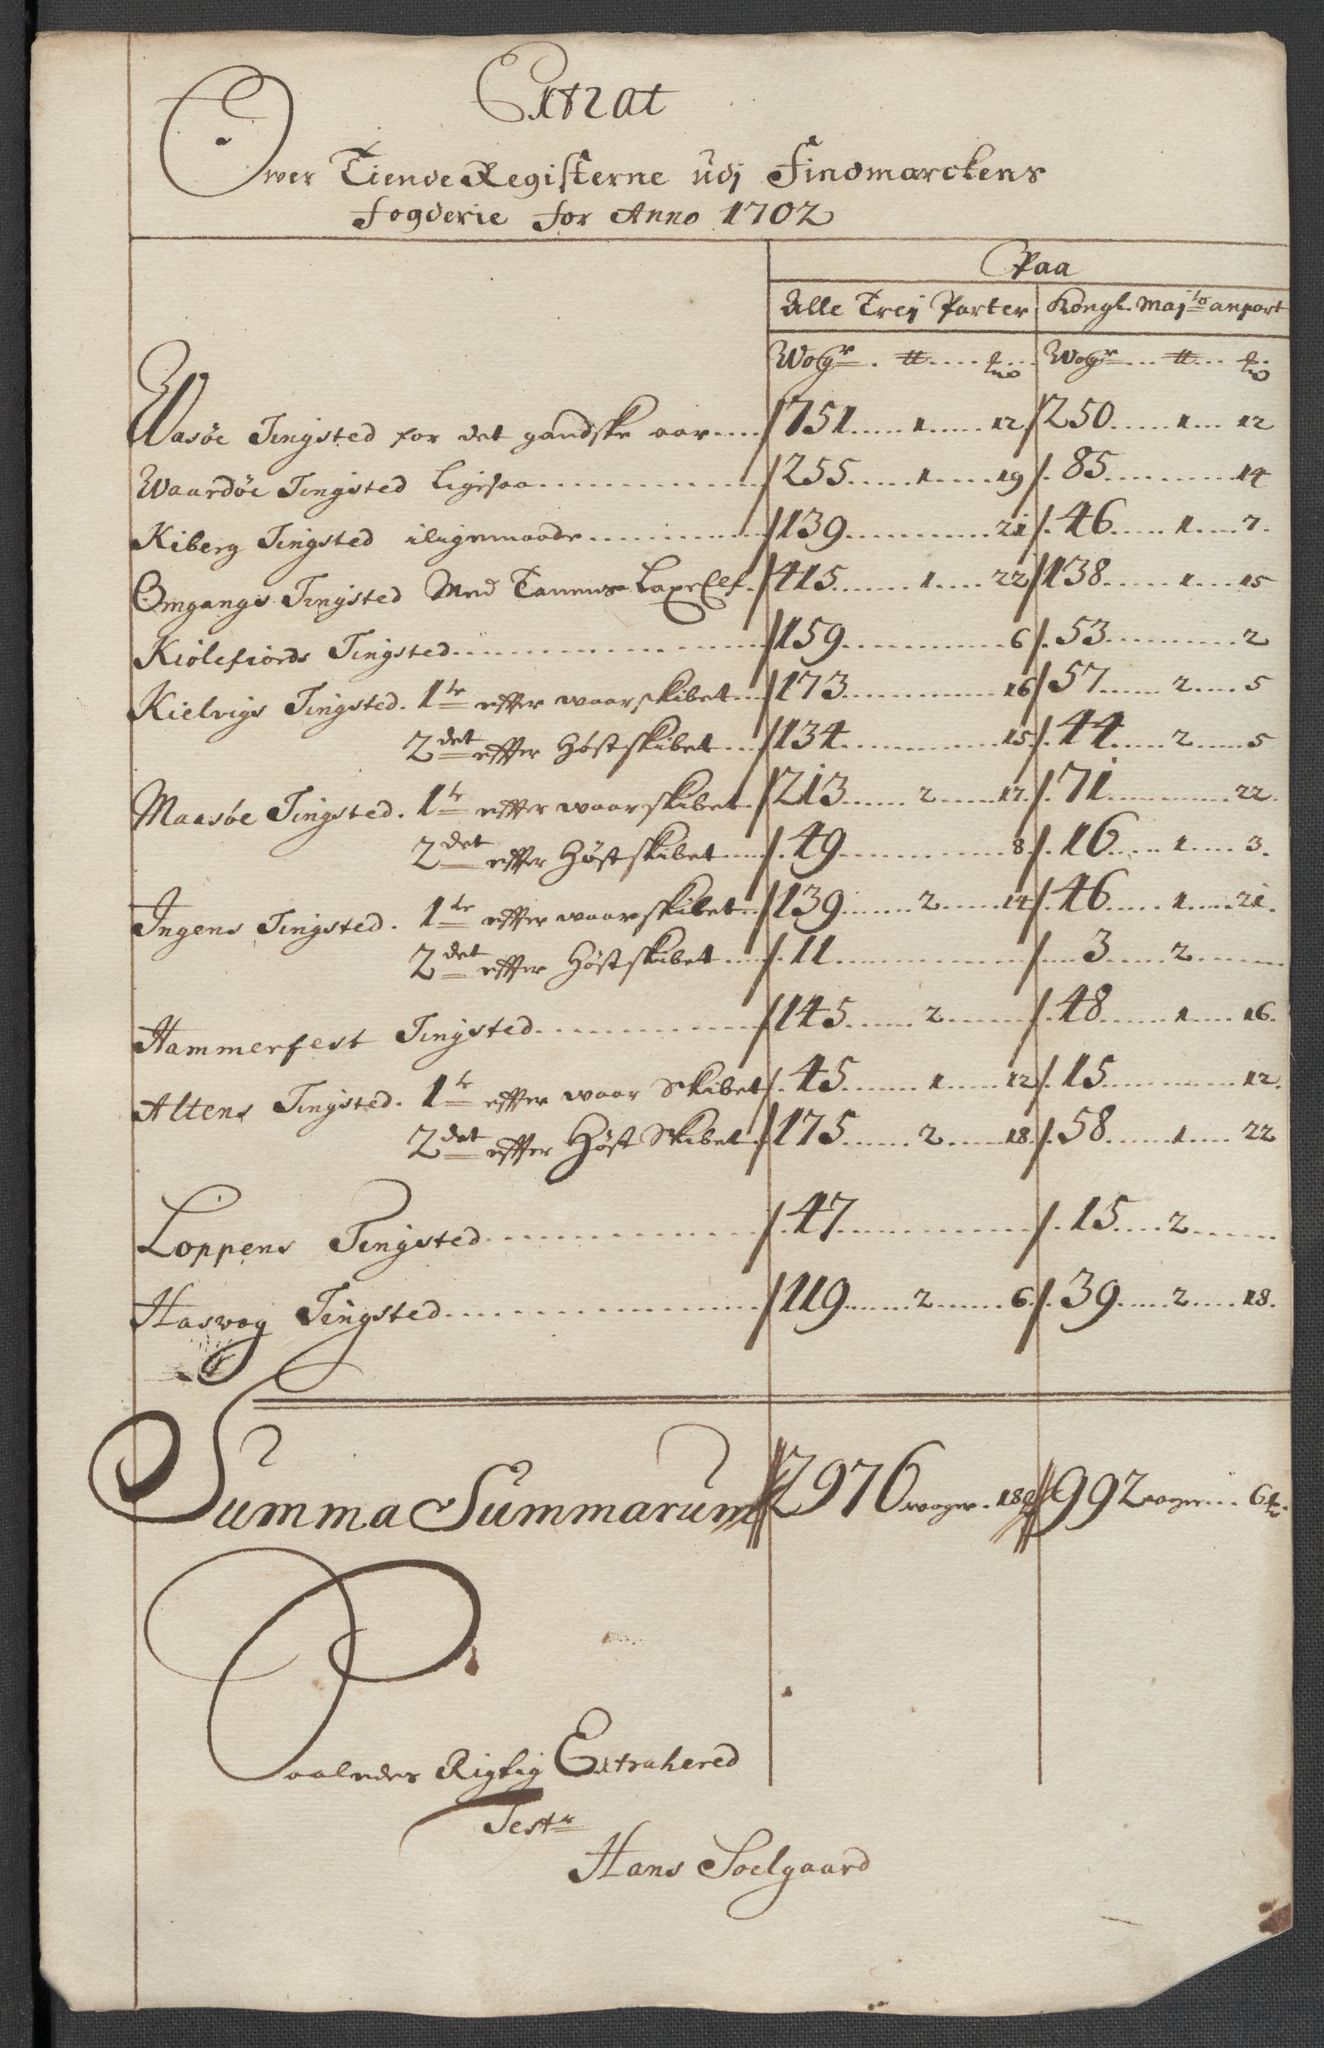 Extrat
Over Tiende Registerne udj Findmarckens
fogderie for Anno 1702
Paa
Alle Trej Parter Kongl. Majts anpart
Wogr tt Wogr tt
Wasøe Tingsted for det gandske aar 751 1 12 250 1 12
Waardøe Tingsted ligesaa 255 1 19 85 14
Kiberg Tingsted iligemaade 139 21 46 1 7
Omgangs Tingsted Med Tanens LaxeElf 415 1 22 138 1 15
Kiølefiords Tingsted 159 6 53 2
Kielvigs Tingsted. 1te effter waarskibet 173 16 57 2 5
2det effter Høstskibet 134 15 44 2 5
Maasøe Tingsted. 1te effter waarskibet 213 2 17 71 22
2det effter Høstskibet 49 8 16 1 3
Ingens Tingsted. 1te effter waarskibet 139 2 14 46 1 21
2det effter Høstskibet 11 3 2
Hammerfest Tingsted 145 2 48 1 16
Altens Tingsted. 1te effter waar Skibet 45 1 12 15 12
2det effter Høst Skibet 175 2 18 58 1 22
Loppens Tingsted 47 15 2
Hasvog Tingsted 119 2 6 39 2 18
Summa Summarum 2976 woger 18 992 woger 6
Saaledes Rigtig Extrahered
Test
Hans Soelgaard